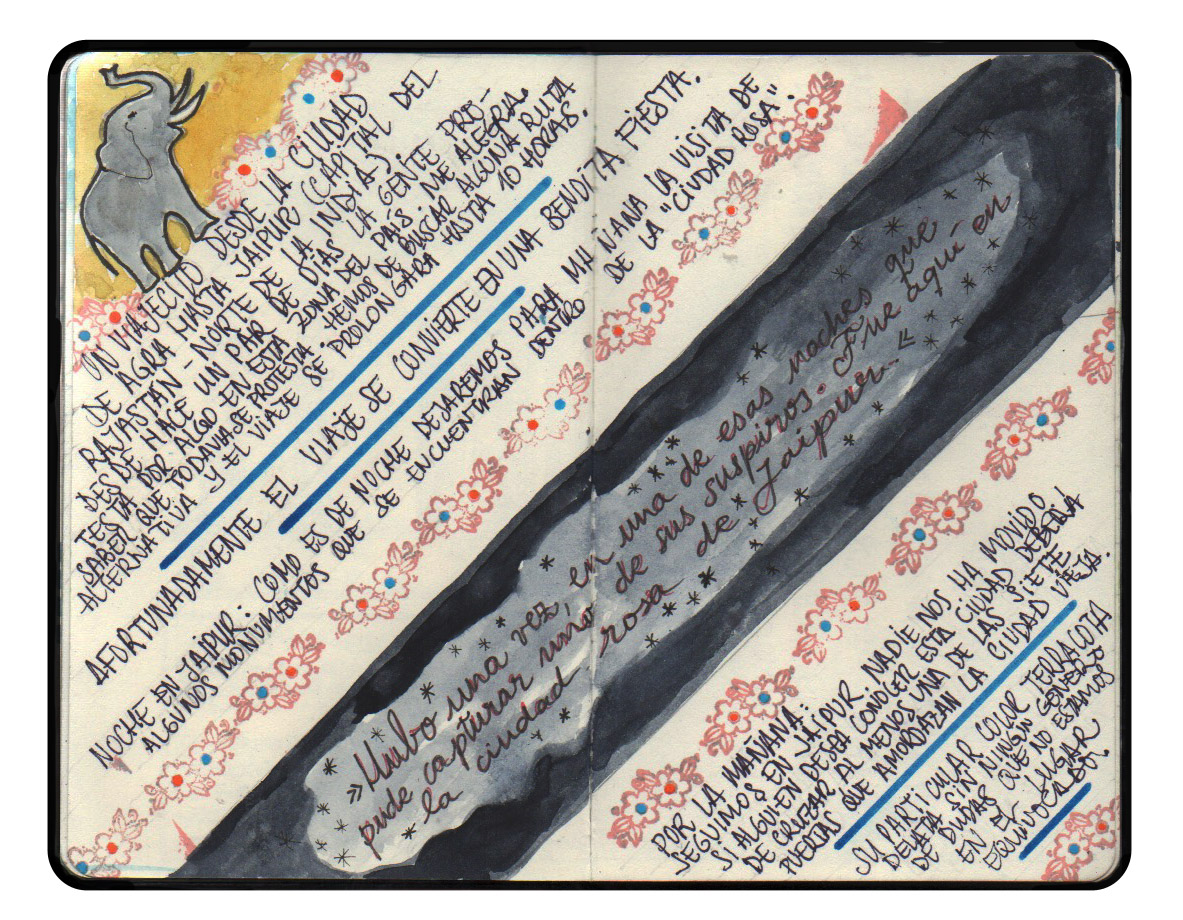 UN VIAJECITO DESDE LA CIUDAD DEL
DE AGRA HASTA JAIPUR (CAPITAL
RAJASTÁN - NORTE DE LA INDIA).
DESDE HACE UN PAR DE DÍAS LA GENTE PRO-
TESTA POR ALGO EN ESTA ZONA DEL PAÍS. ME ALEGRA
SABER QUE TODAVIA SE PROTESTA. HEMOS DE BUSCAR ALGUNA RUTA
ALTERNATIVA Y EL VIAJE SE PROLONGARÁ HASTA 10 HORAS.
AFORTUNADAMENTE EL VIAJE SE CONVIERTE EN UNA BENDITA FIESTA.
NOCHE EN JAIPUR: COMO ES DE NOCHE DEJAREMOS PARA MAÑANA LA VISITA DE
ALGUNOS MONUMENTOS QUE SE ENCUENTRAN DENTRO DE LA "CIUDAD ROSA".
»Hubo una vez, en una de esas noches que
pude capturar uno de sus suspiros. Fue aquí en
la ciudad rosa de Jaipur... «
POR LA MAÑANA:
SEGUIMOS EN JAIPUR. NADIE NOS HA MOVIDO
SI ALGUIEN DESEA CONOCER ESTA CIUDAD DEBERÍA
DE CRUZAR AL MENOS UNA DE LAS SIETE
PUERTAS QUE AMORDAZAN LA CIUDAD VIEJA.
SU PARTICULAR COLOR TERRACOTA
DELATA SIN NINGÚN GENERO
DE DUDAS QUE NO ESTAMOS
EN EL LUGAR
EQUIVOCADO.